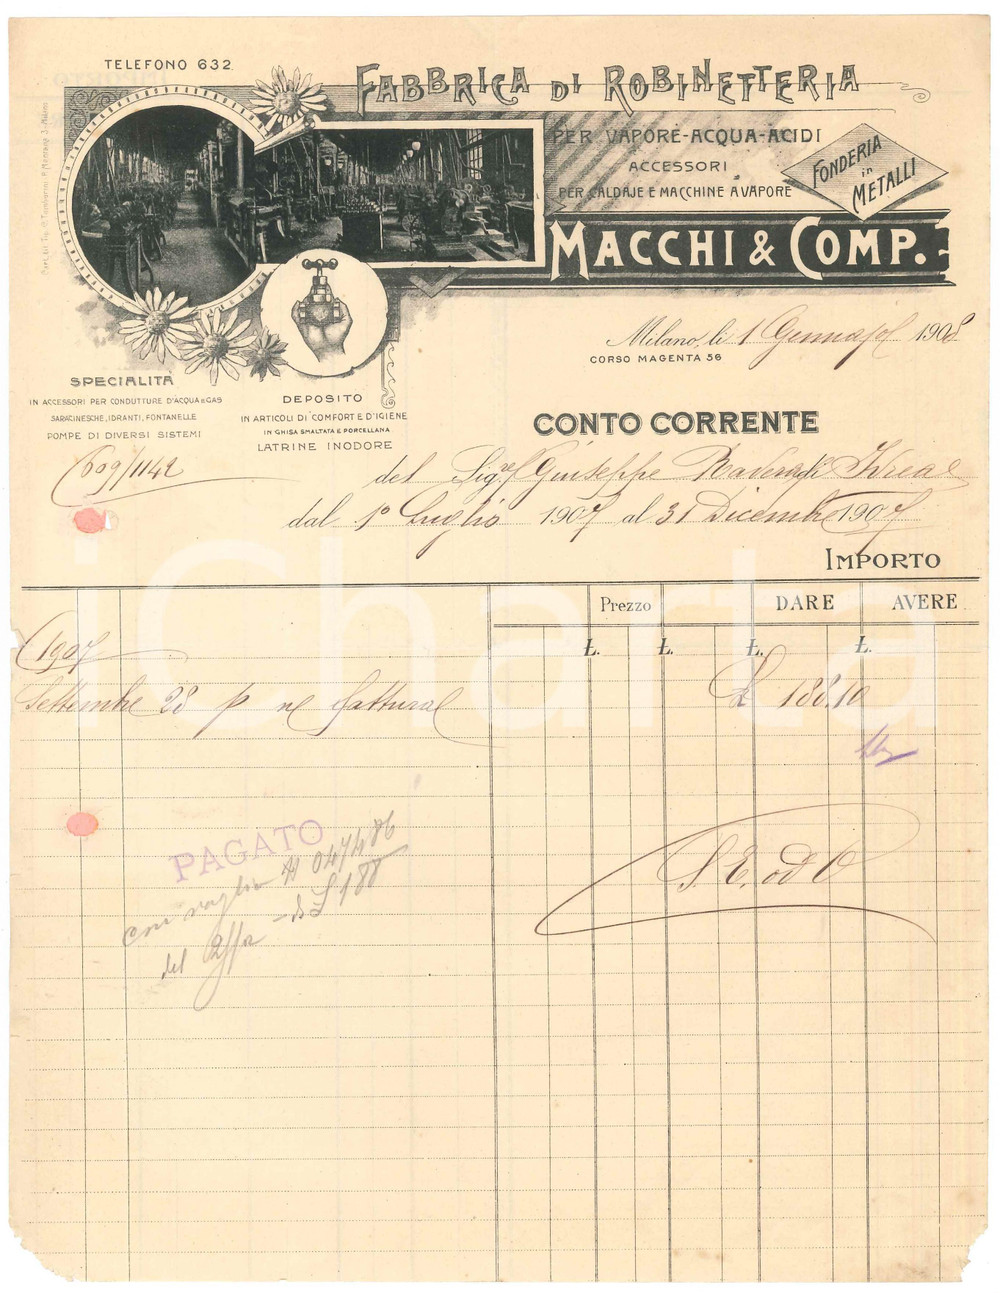 TELEFONO 632.
FABBRICA DI ROBINETTERIA
PER VAPORE-ACQUA-ACIDI
ACCESSORI
PER CALDAJE E MACCHINE A VAPORE
FONDERIA
in
METALLI
MACCHI & COMP.
Milano, li 1 Gennajo 1908
CORSO MAGENTA 56
SPECIALITÀ
IN ACCESSORI PER CONDUTTURE D'ACQUA E GAS
SARACINESCHE, IDRANTI, FONTANELLE
POMPE DI DIVERSI SISTEMI
DEPOSITO
IN ARTICOLI DI COMFORT E D'IGIENE
IN GHISA SMALTATA E PORCELLANA
LATRINE INODORE
609/1142
CONTO CORRENTE
del Sig. Giuseppe Ivrea
dal 1° Luglio 1907 al 31 Dicembre 1907
IMPORTO
Prezzo DARE AVERE
£. £. £. £.
1907
Settembre 28 p ns fattura £ 188.10
S. E. od O
PAGATO
con vaglia N 047486
del di £ 188
iCharta